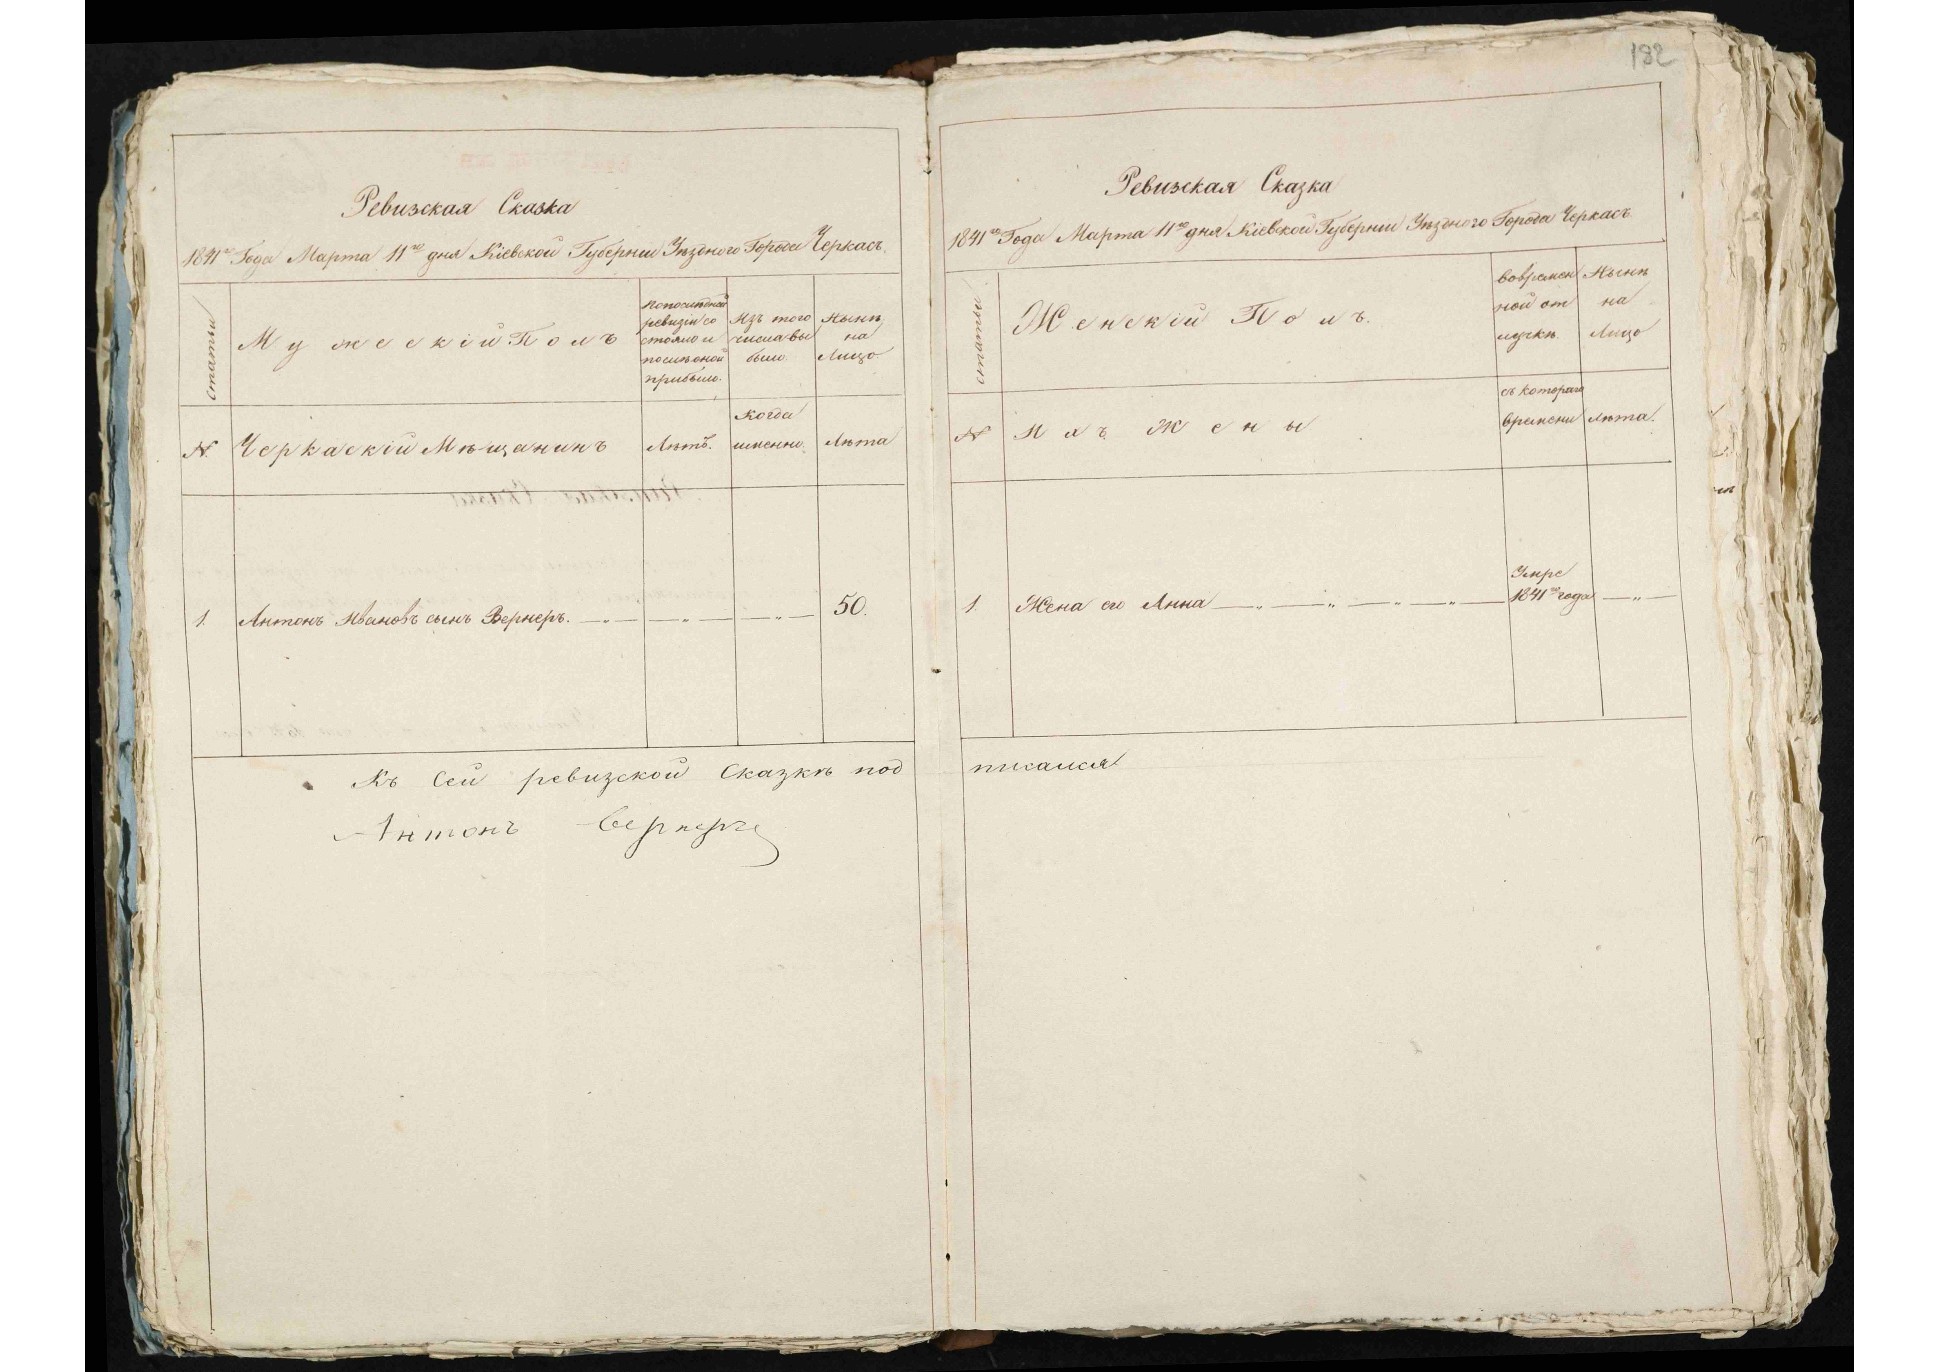 182
Ревизская Сказка
1841го Года Марта 11го дня Кіевской Губерніи Уѣзднаго Города Черкасъ.
статьи
Мужескій Полъ
по последней
ревизіи со
стояло и
после оной
прибыло.
Изъ того
числа вы
было.
Нынѣ
на
Лицо
N.
Черкаскій Мѣщанинъ
Лѣтъ.
когда
именно.
Лѣта
1.
Антонъ Ивановъ сынъ Вернеръ.
50.
Къ сей ревизской сказкѣ под
Антонъ Вернеръ
Ревизская Сказка
1841го Года Марта 11го дня Кіевской Губерніи Уѣзднаго Города Черкасъ.
статьи
Женскій Полъ.
во времен
ной от
лучкѣ.
Нынѣ
на
Лицо
N
Ихъ Жены
съ котораго
времени
Лѣта.
1.
Жена его Анна
Умре
1841го года
писался